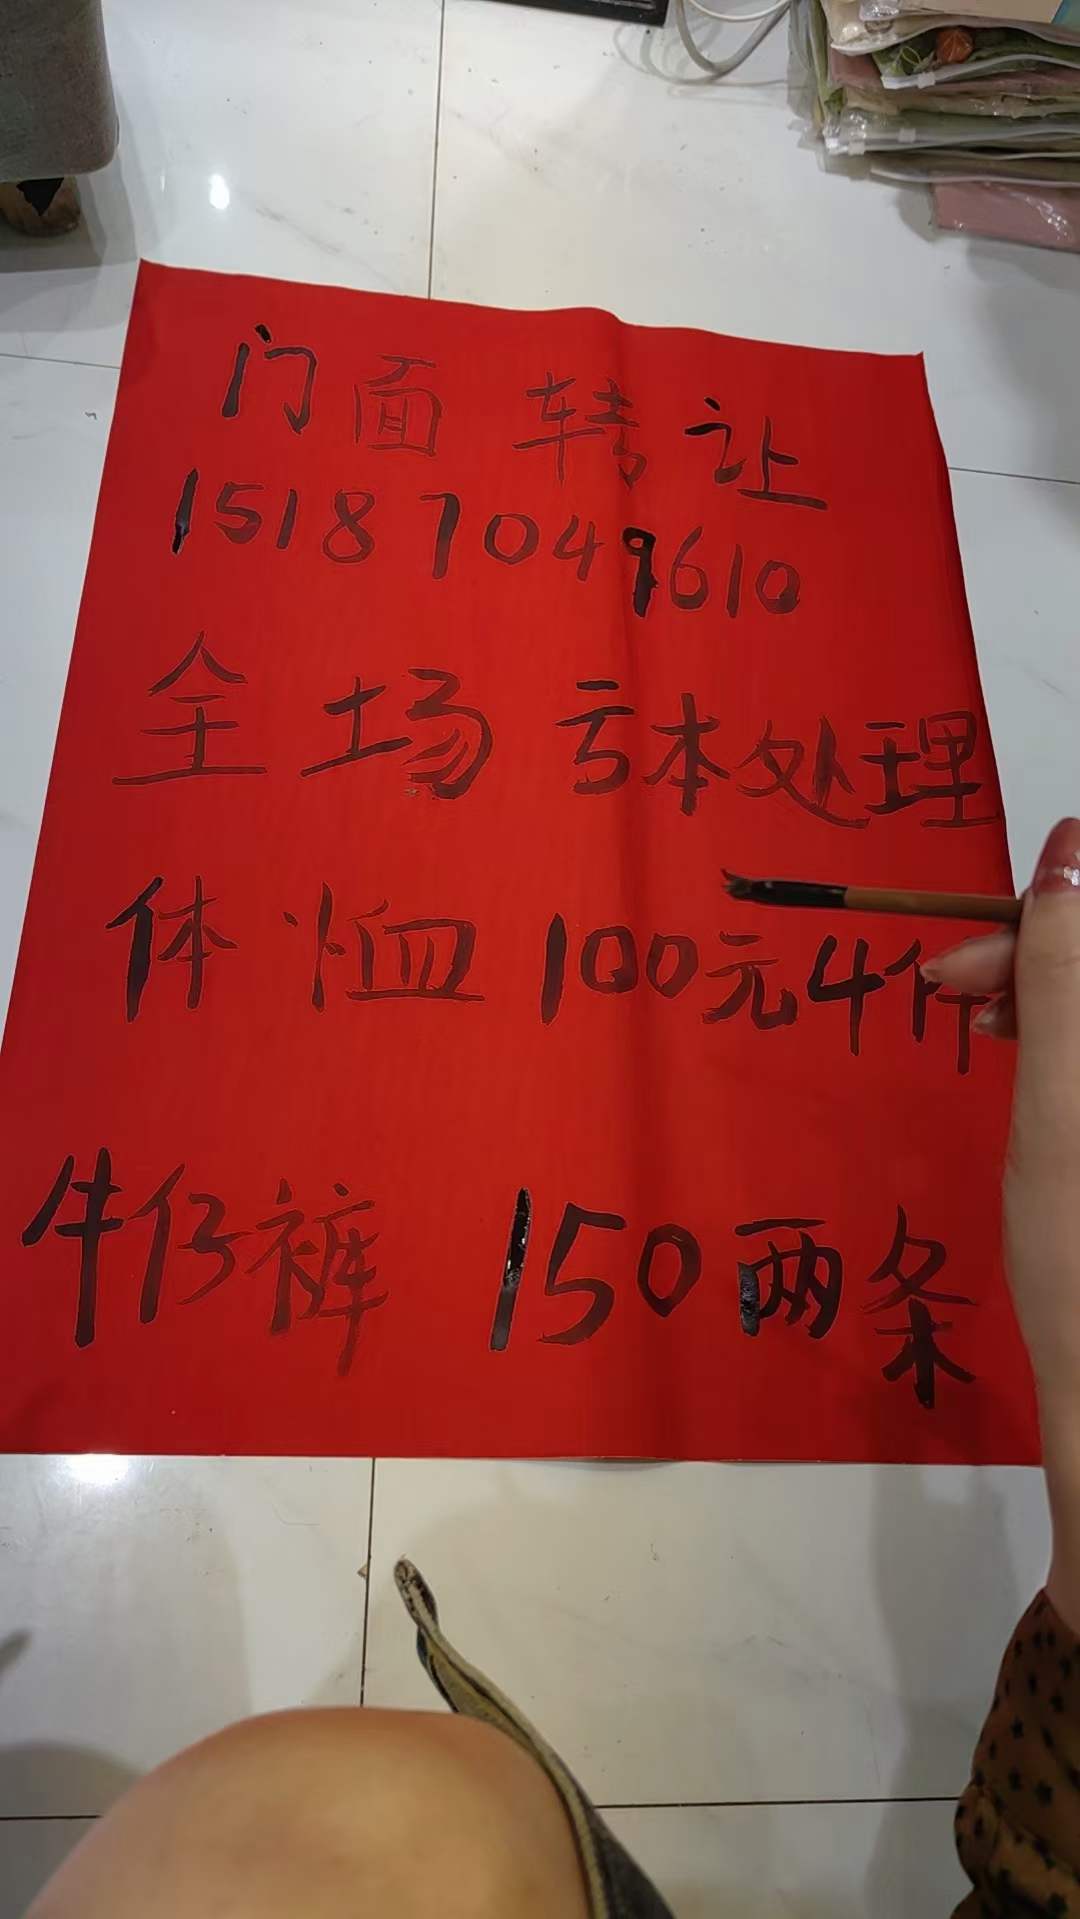 门面转让
15187049610
全场亏本处理
体恤100元4件
牛仔裤 150两条